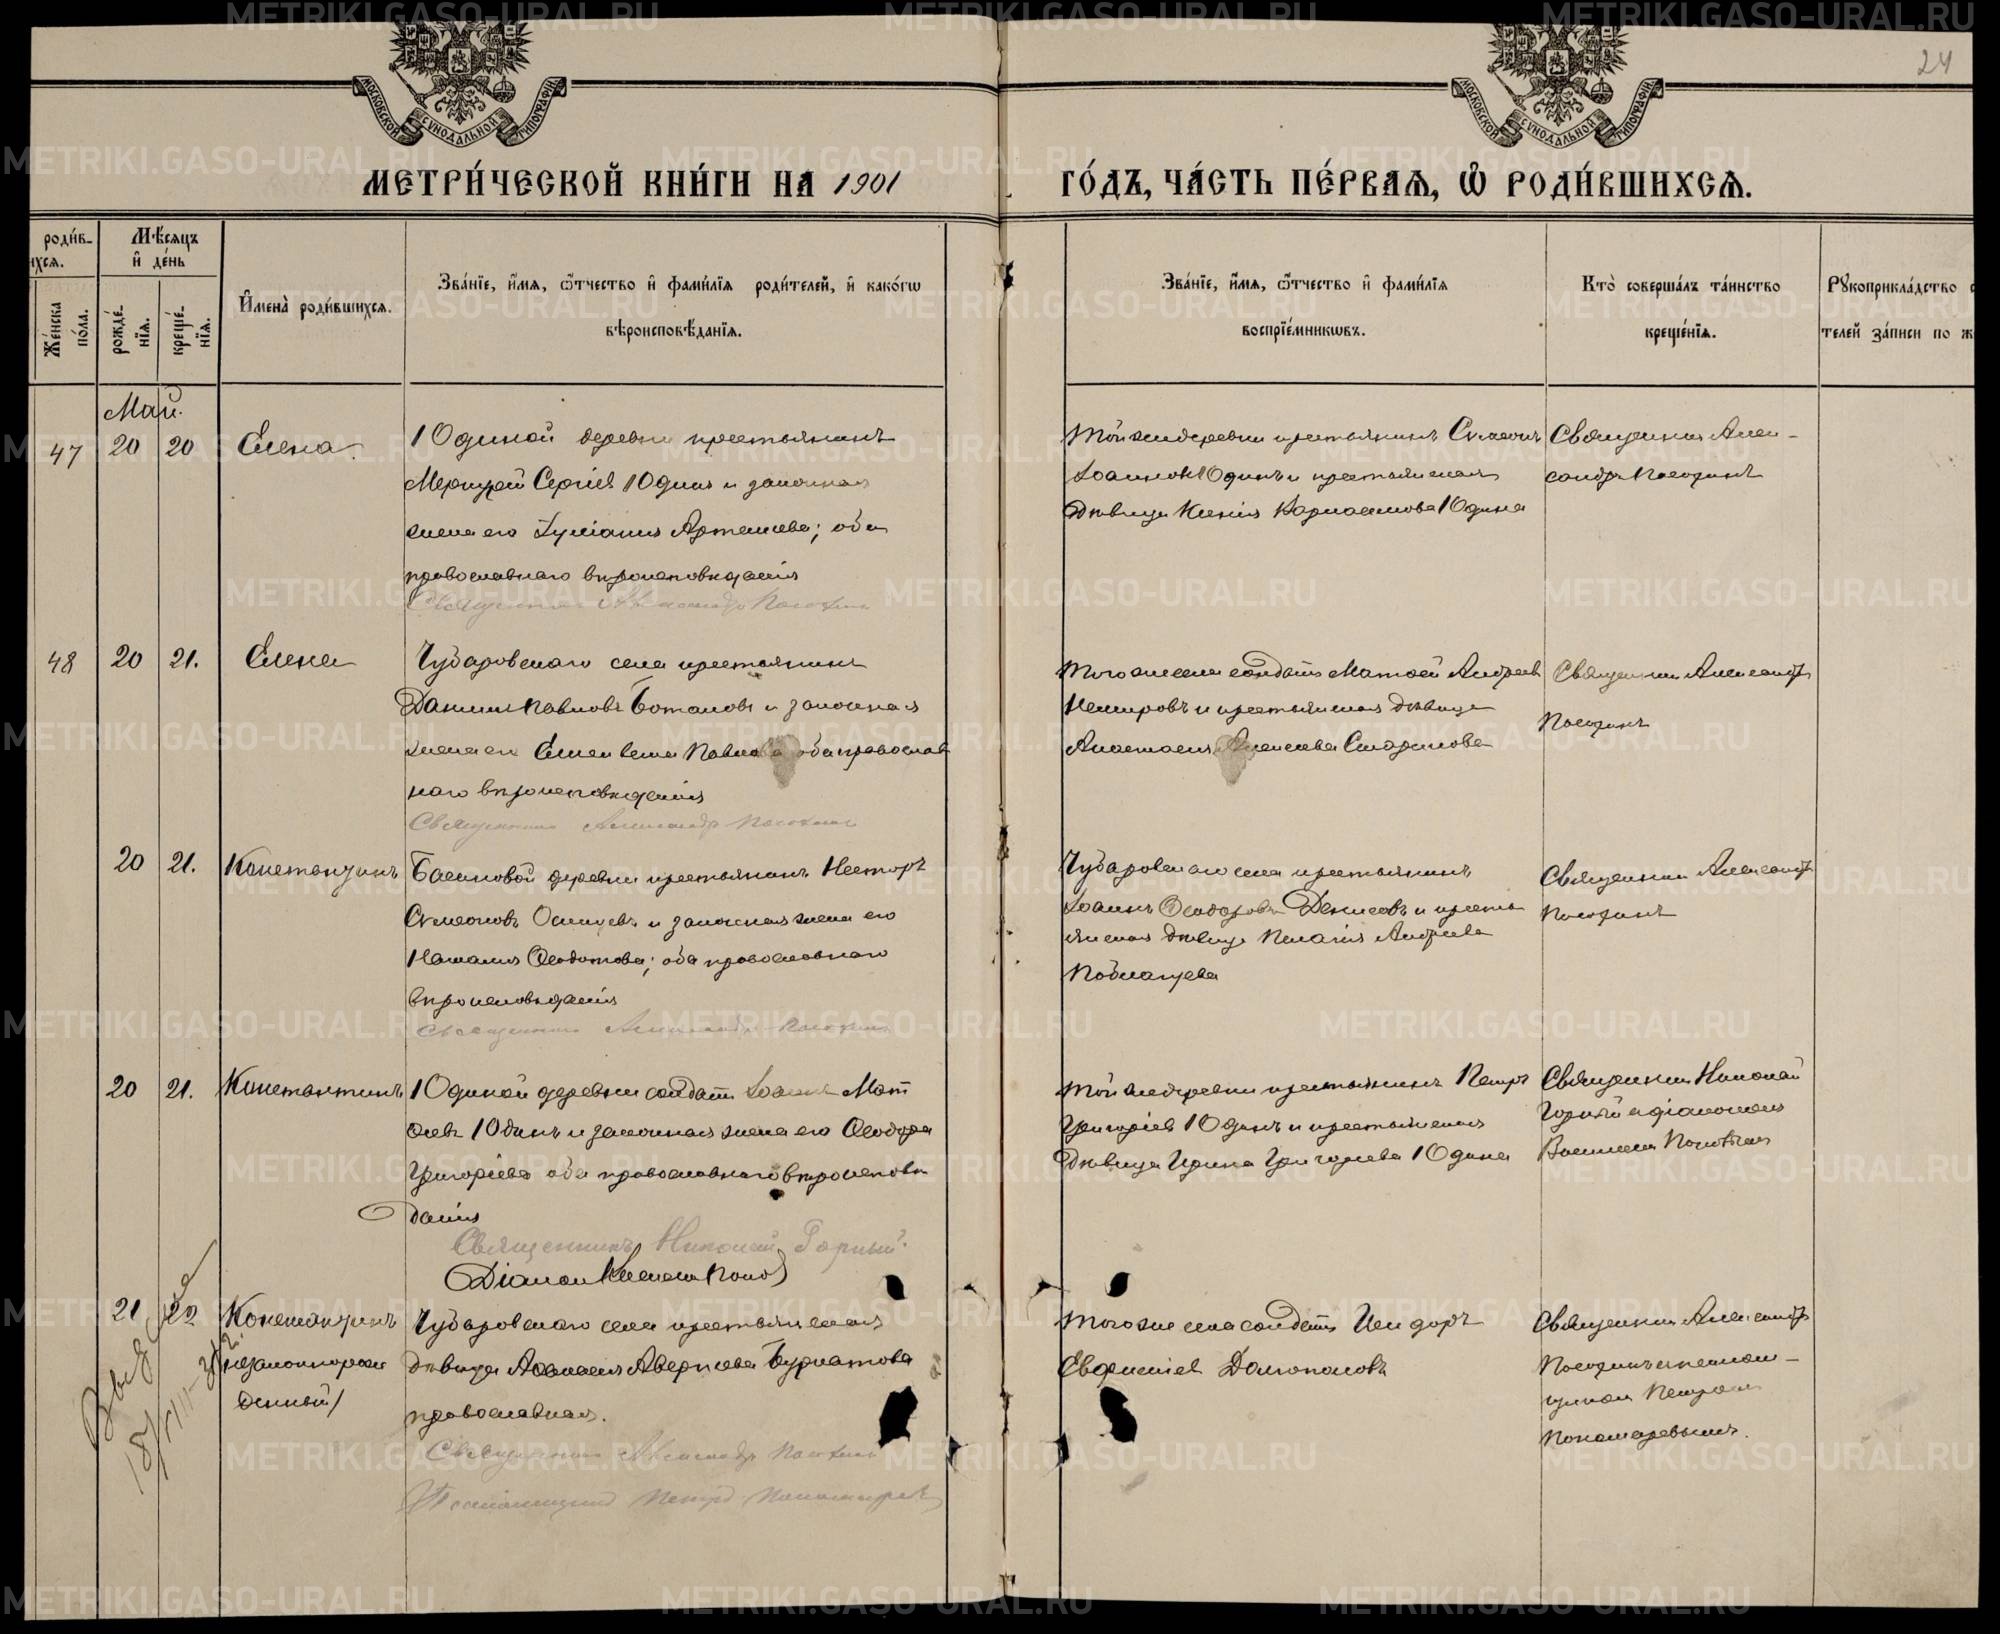 24
МОСКОВСКОЙ СѴНОДАЛЬНОЙ ТИПОГРАФІИ
МОСКОВСКОЙ СѴНОДАЛЬНОЙ ТИПОГРАФІИ
МЕТРИ́ЧЕСКОЙ КНИ́ГИ НА 1901
ГО́ДЪ, ЧА́СТЬ ПЕ́РВАѦ, Ѡ҆ РОДИ́ВШИХСѦ.
роди́в-
ихсѧ.
Же́нска по́ла.
Мѣ́сяцъ и҆ де́нь
рожде́нїѧ.
креще́нїѧ.
И҆мена̀ роди́вшихсѧ.
Зва́нїе, и҆́мѧ, ѻ҆́тчество и҆ фами́лїѧ роди́телей, и҆ како́гѡ
вѣроисповѣ́данїѧ.
Зва́нїе, и҆́мѧ, ѻ҆́тчество и҆ фами́лїѧ
воспрїе́мникѡвъ.
Кто̀ соверша́лъ та́инство
креще́нїѧ.
Рꙋкоприкла́дство с
телей за́писи по ж
Май.
47 20 20 Елена
Юдиной деревни крестьянинъ
Меркурій Сергіевъ Юдинъ и законная
жена его Іуліанія Артемьева; оба
православнаго вѣроисповѣданія
Священникъ Александръ Посохинъ
Той же деревни крестьянинъ Симеонъ
Іоанновъ Юдинъ и крестьянская
дѣвица Ксенія Юдина
Священникъ Алек-
сандръ Посохинъ
48 20 21. Елена
Чубаровскаго села крестьянинъ
Даніилъ Павловъ и законная
жена его Павлова оба православ
наго вѣроисповѣданія
Священникъ Александръ Посохинъ
Того же села солдатъ Матѳей Андреевъ
и крестьянская дѣвица
Анастасія Алексеева
Священникъ Александръ
Посохинъ
20 21. Константинъ
деревни крестьянинъ Несторъ
Симеоновъ и законная жена его
Наталія Ѳеодотова; оба православнаго
вѣроисповѣданія
Священникъ Александръ Посохинъ
Чубаровскаго села крестьянинъ
Іоаннъ Ѳеодоровъ Денисовъ и кресть
янская дѣвица Пелагія Андреева
Священникъ Александръ
Посохинъ
20 21. Константинъ
Юдиной деревни солдатъ Іоаннъ Матѳ
еевъ Юдинъ и законная жена его Ѳеодора
Григоріева оба православнаго вѣроисповѣ
данія
Священникъ Николай Горный.
Діаконъ Попов
Той же деревни крестьянинъ Петръ
Григоріевъ Юдинъ и крестьянская
дѣвица Ирина Григорьева Юдина
Священникъ Николай
Горный и діакономъ
21 22 Константинъ
незаконнорож
денный/
Чубаровскаго села крестьянская
дѣвица
православная.
Священникъ Александръ Посохинъ
Псаломщикъ Петръ Пономаревъ
Того же села солдатъ Исидоръ
Священникъ Александръ
Посохинъ съ псалом-
щикомъ Петромъ
Пономаревымъ.